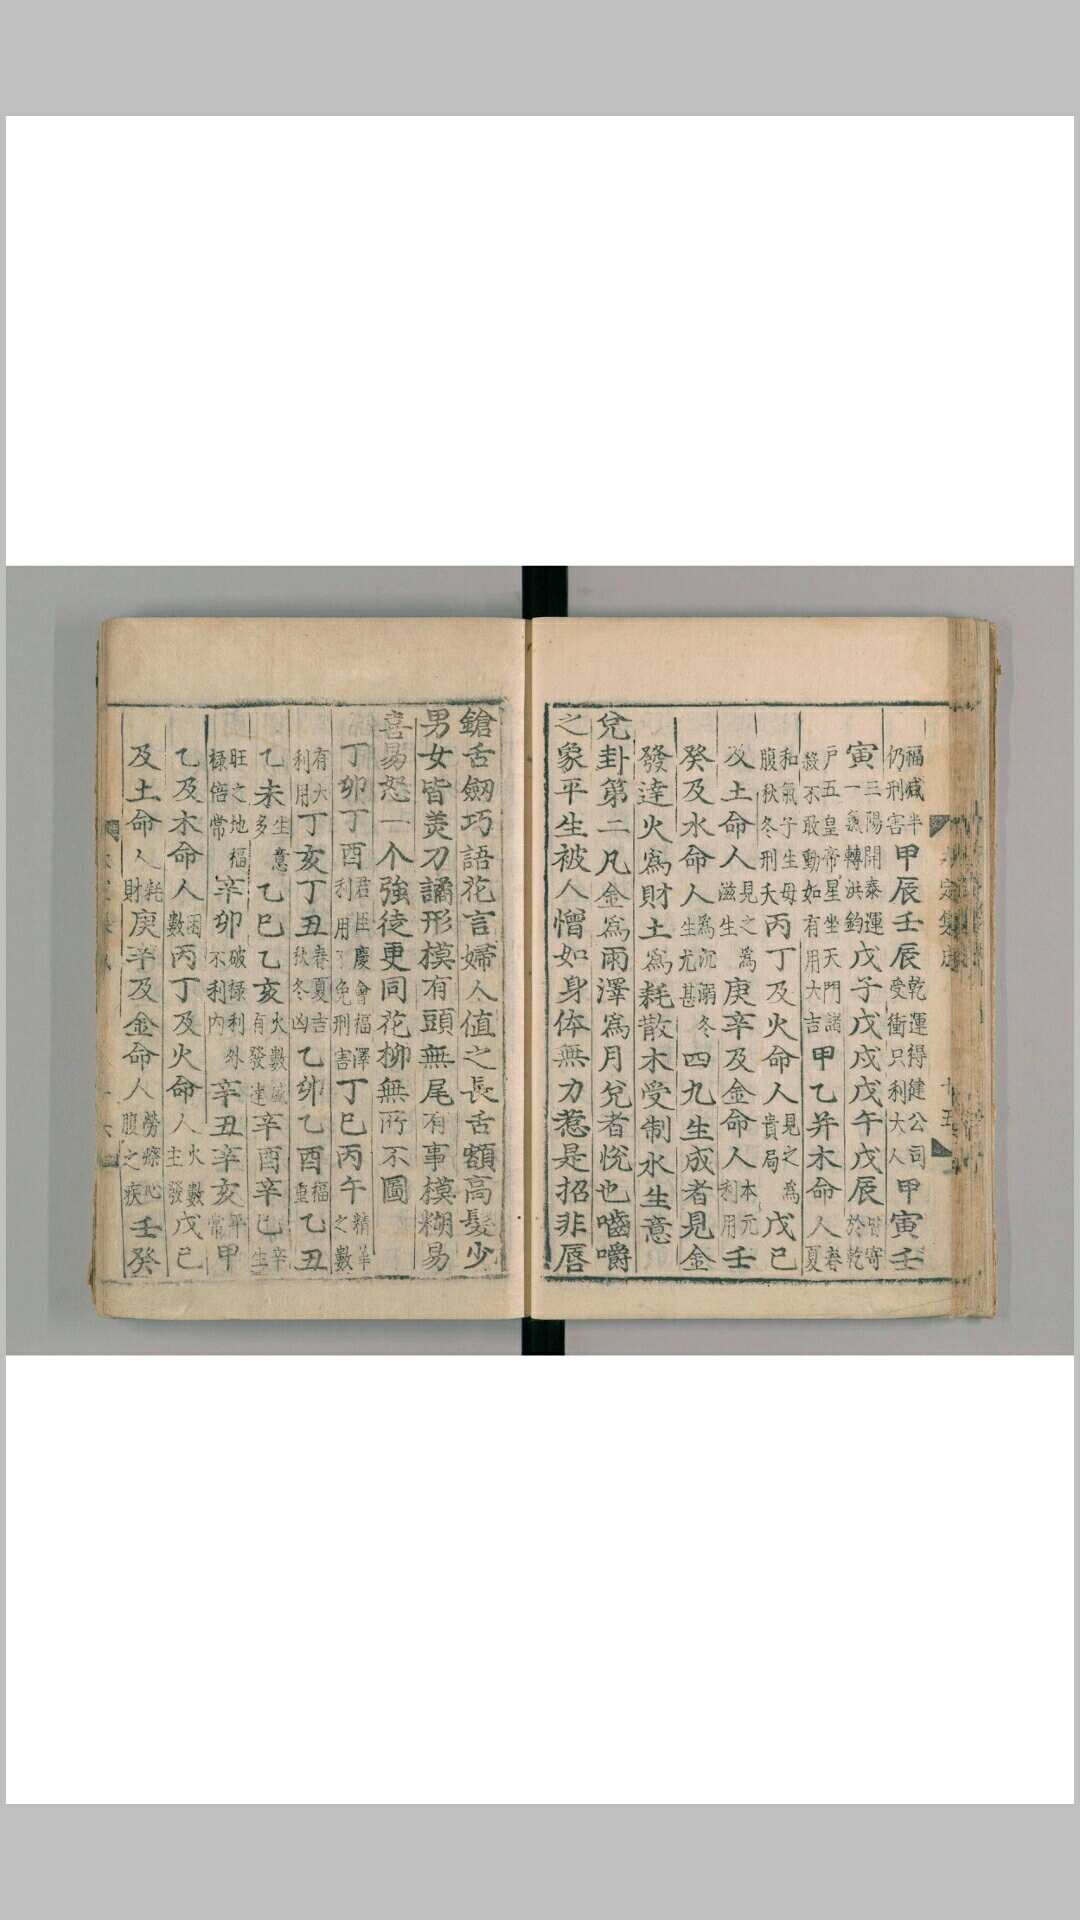 福咸半仍刑害甲辰壬辰乾運得健公司受衝只利大人甲寅壬
寅三陽開泰運一氣轉洪鈞戊子戊戌戊午戊辰皆寄於乾
戶五皇帝星坐天門諸殺不敢動如有用大吉甲乙并木命人春夏
和氣子生母腹秋冬刑夭丙丁及火命人見之為貴局戊己
及土命人見之為滋生庚辛及金命人本元利用壬
癸及水命人為沉溺冬生尤甚四九生成者見金
發達火為財土為耗散木受制水生意
兌卦第二凡金為雨澤為月兌者悅也嚙嚼
之象平生被人憎如身体無力惹是招非唇
鎗舌劔巧語花言婦人值之長舌額高髮少
男女皆羨刀譎形模有頭無尾有事模糊易
喜易怒一个強徒更同花柳無所不圖
丁卯丁酉君臣慶會福澤利用免刑害丁巳丙午精華之數
有大利用丁亥丁丑春夏吉秋冬凶乙卯乙酉福重乙丑
乙未生意多乙巳乙亥火數減有發達辛酉辛巳辛生
旺之地福祿倍常辛卯破祿利外不利內辛丑辛亥平常甲
乙及木命人困數丙丁及火命人火數主發戊己
及土命人耗財庚辛及金命人勞瘵心腹之疾壬癸